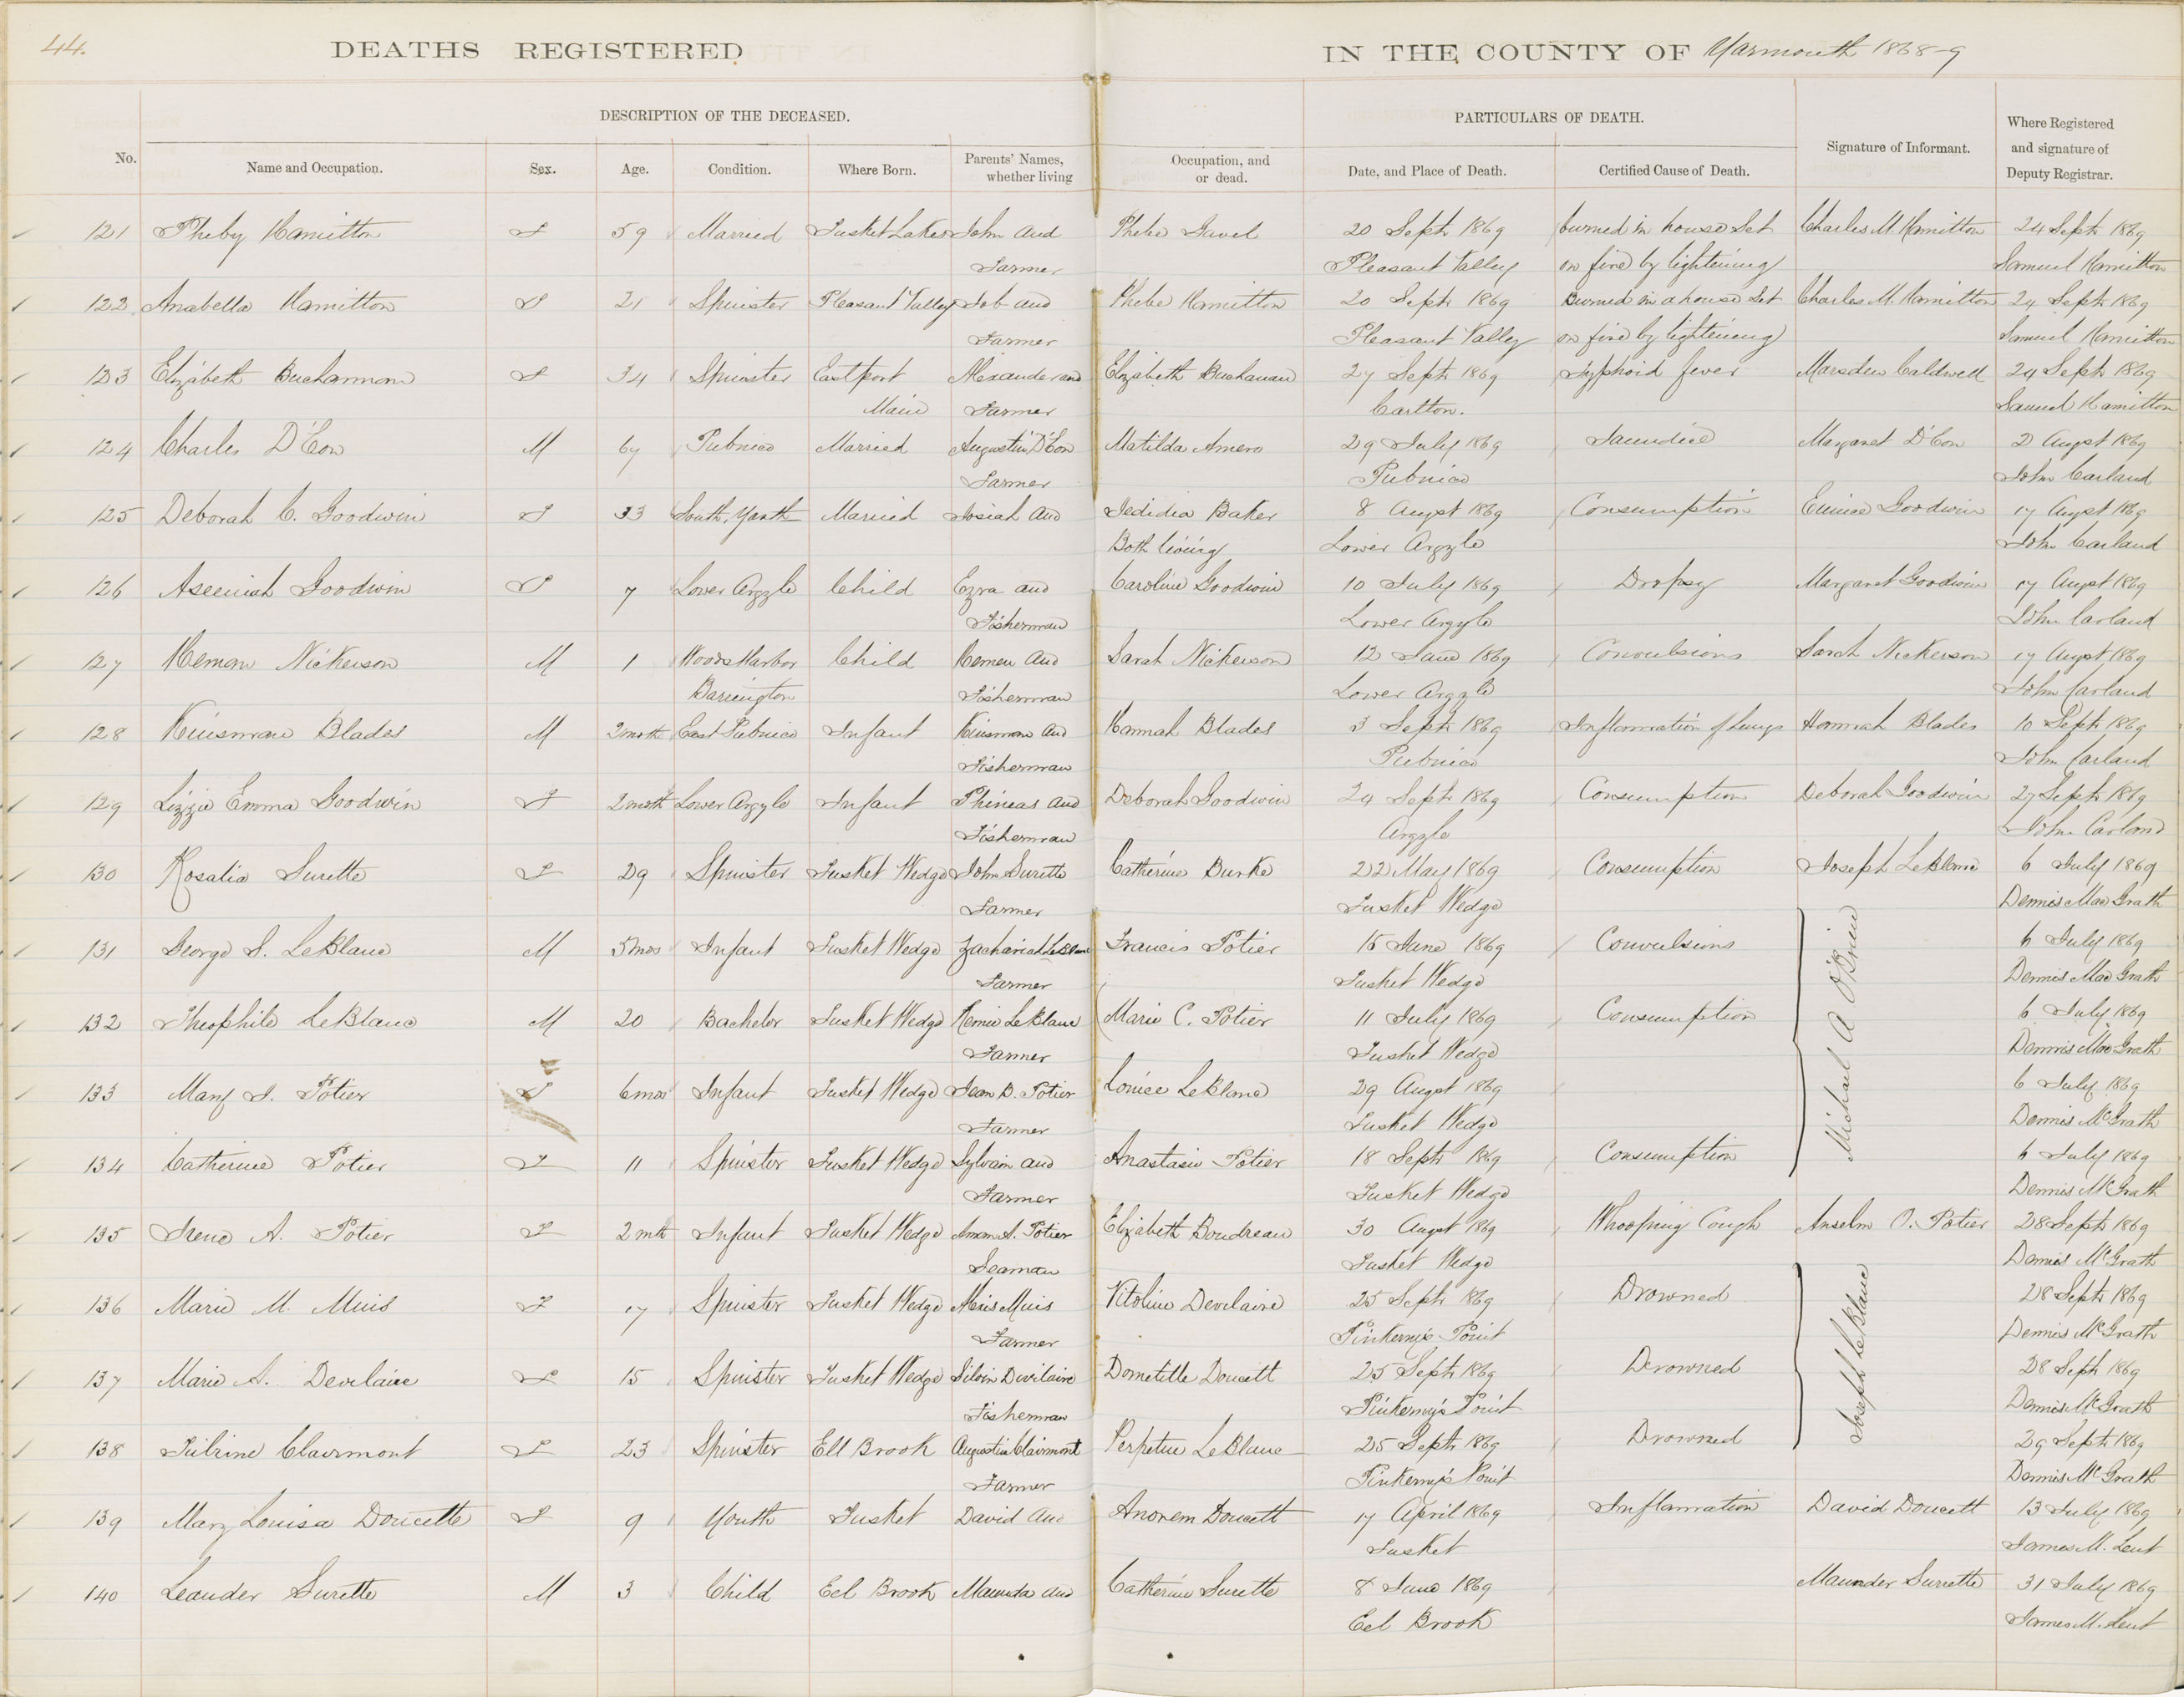 44.
DEATHS REGISTERED IN THE COUNTY OF Yarmouth 1868-9
DESCRIPTION OF THE DECEASED. PARTICULARS OF DEATH.
No. Name and Occupation. Sex. Age. Condition. Where Born. Parents' Names, whether living Occupation, and or dead. Date, and Place of Death. Certified Cause of Death. Signature of Informant. Where Registered and signature of Deputy Registrar.
121 Pheby Hamilton F 59 Married Tusket Lakes John and Phebe Gavel 20 Sept 1869 burned in house Set Charles M. Hamilton 24 Sept 1869
Farmer Pleasant Valley on fire by lightening Samuel Hamilton
122 Anabella Hamilton F 21 Spinster Pleasant Valley Job and Phebe Hamilton 20 Sept 1869 Burned in a house Set Charles M. Hamilton 24 Sept 1869
Farmer Pleasant Valley on fire by lightening Samuel Hamilton
123 Elizabeth Buchannon F 34 Spinster Eastport Alexander and Elizabeth Buchanan 27 Sept 1869 Typhoid fever Marsden Caldwell 29 Sept 1869
Main Farmer Carlton. Samuel Hamilton
124 Charles D'Eon M 67 Pubnico Married Augustin D'Eon Matilda Amero 29 July 1869 Jaundice Margaret D'Eon 2 Augst 1869
Farmer Pubnico John Carland
125 Deborah C. Goodwin F 33 South, Yarth Married Josiah and Jedidia Baker 8 Augst 1869 Consumption Eunice Goodwin 17 Augst 1869
Both living Lower Argyle John Carland
126 Aseeniah Goodwin F 7 Lower Argyle Child Ezra and Caroline Goodwin 10 July 1869 Dropsy Margaret Goodwin 17 Augst 1869
Fisherman Lower Argyle John Carland
127 Heman Nickerson M 1 Woods Harbor Child Hemen and Sarah Nickerson 12 June 1869 Convulsions Sarah Nickerson 17 Augst 1869
Barrington Fisherman Lower Argyle John Carland
128 Kinsman Blades M 2 month East Pubnico Infant Kinsman and Hannah Blades 3 Sept 1869 Inflammation of Lungs Hannah Blades 10 Sept 1869
Fisherman Pubnico John Carland
129 Lizzie Emma Goodwin F 2 month Lower Argyle Infant Phineas and Deborah Goodwin 24 Sept 1869 Consumption Deborah Goodwin 27 Sept 1869
Fisherman Argyle John Carland
130 Rosalia Surette F 29 Spinster Tusket Wedge John Surette Catherine Burke 22 May 1869 Consumption Joseph LeBlanc 6 July 1869
Farmer Tusket Wedge Dennis Mac Grath
131 George S. LeBlanc M 5 mos Infant Tusket Wedge Zachariah LeBlanc Francis Potier 15 June 1869 Convulsions Michael A O'Brien 6 July 1869
Farmer Tusket Wedge Dennis Mac Grath
132 Theophile LeBlanc M 20 Bachelor Tusket Wedge Remie LeBlanc Marie C. Potier 11 July 1869 Consumption 6 July 1869
Farmer Tusket Wedge Dennis Mac Grath
133 Mary J. Potier F 6 mos Infant Tusket Wedge Jean B. Potier Louice LeBlanc 29 Augst 1869 6 July 1869
Farmer Tusket Wedge Dennis McGrath
134 Catherine Potier F 11 Spinster Tusket Wedge Sylvain and Anastasie Potier 18 Sept 1869 Consumption 6 July 1869
Farmer Tusket Wedge Dennis McGrath
135 Irene A. Potier F 2 mth Infant Tusket Wedge A. Potier Elizabeth Boudreau 30 Augst 1869 Whooping Cough Anselm O. Potier 28 Sept 1869
Seaman Tusket Wedge Dennis McGrath
136 Marie M. Muis F 17 Spinster Tusket Wedge Muis Vitoline Devilaire 25 Sept 1869 Drowned Joseph LeBlanc 28 Sept 1869
Farmer Pinkerny's Point Dennis McGrath
137 Marie A. Devilaire F 15 Spinster Tusket Wedge Silvin Devilaire Dometille Doucett 25 Sept 1869 Drowned 28 Sept 1869
Fisherman Pinkerny's Point Dennis McGrath
138 Clairmont F 23 Spinster Ell Brook Augustin Clairmont Perpetue LeBlanc 25 Sept 1869 Drowned 29 Sept 1869
Farmer Pinkerny's Point Dennis McGrath
139 Mary Louisa Doucette F 9 Youth Tusket David and Anorem Doucett 17 April 1869 Inflamation David Doucett 13 July 1869
Tusket James M. Lent
140 Leander Surette M 3 Child Eel Brook and Catherine Surette 8 June 1869 Maunder Surrette 31 July 1869
Eel Brook James M. Lent